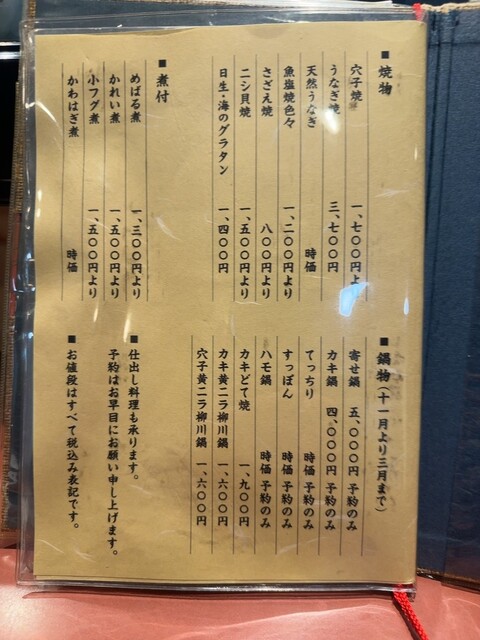 ■焼物
穴子焼 一、七〇〇円より
うなぎ焼 三、七〇〇円
天然うなぎ 時価
魚塩焼色々 一、二〇〇円より
さざえ焼 八〇〇円より
ニシ貝焼 一、五〇〇円より
日生・海のグラタン 一、四〇〇円
■煮付
めばる煮 一、三〇〇円より
かれい煮 一、五〇〇円より
小フグ煮 一、五〇〇円より
かわはぎ煮 時価
■鍋物(十一月より三月まで)
寄せ鍋 五、〇〇〇円 予約のみ
カキ鍋 四、〇〇〇円 予約のみ
てっちり 時価 予約のみ
すっぽん 時価 予約のみ
ハモ鍋 時価 予約のみ
カキどて焼 一、九〇〇円
カキ黄ニラ柳川鍋 一、六〇〇円
穴子黄ニラ柳川鍋 一、六〇〇円
■仕出し料理も承ります。
予約はお早目にお願い申し上げます。
■お値段はすべて税込み表記です。